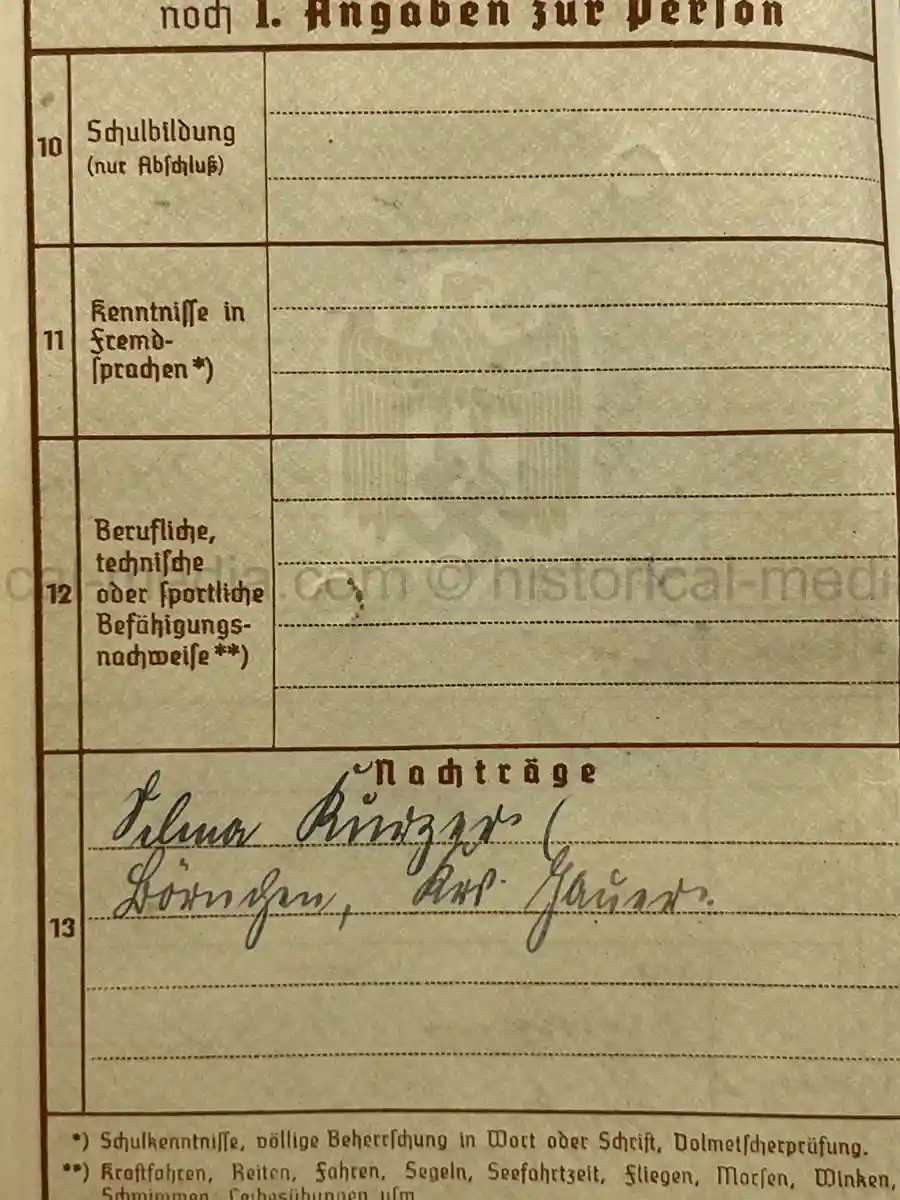 noch I. Angaben zur Person
10 Schulbildung
(nur Abschluß)
11 Kenntnisse in
Fremd-
sprachen *)
12 Berufliche,
technische
oder sportliche
Befähigungs-
nachweise **)
cal-media.com © historical-medi
13 Nachträge
Selma Kurzer (
Börnchen, Krs. Jauer.
*) Schulkenntnisse, völlige Beherrschung in Wort oder Schrift, Dolmetscherprüfung.
**) Kraftfahren, Reiten, Fahren, Segeln, Seefahrtzeit, Fliegen, Morsen, Winken,
Schwimmen, Leibesübungen usw.